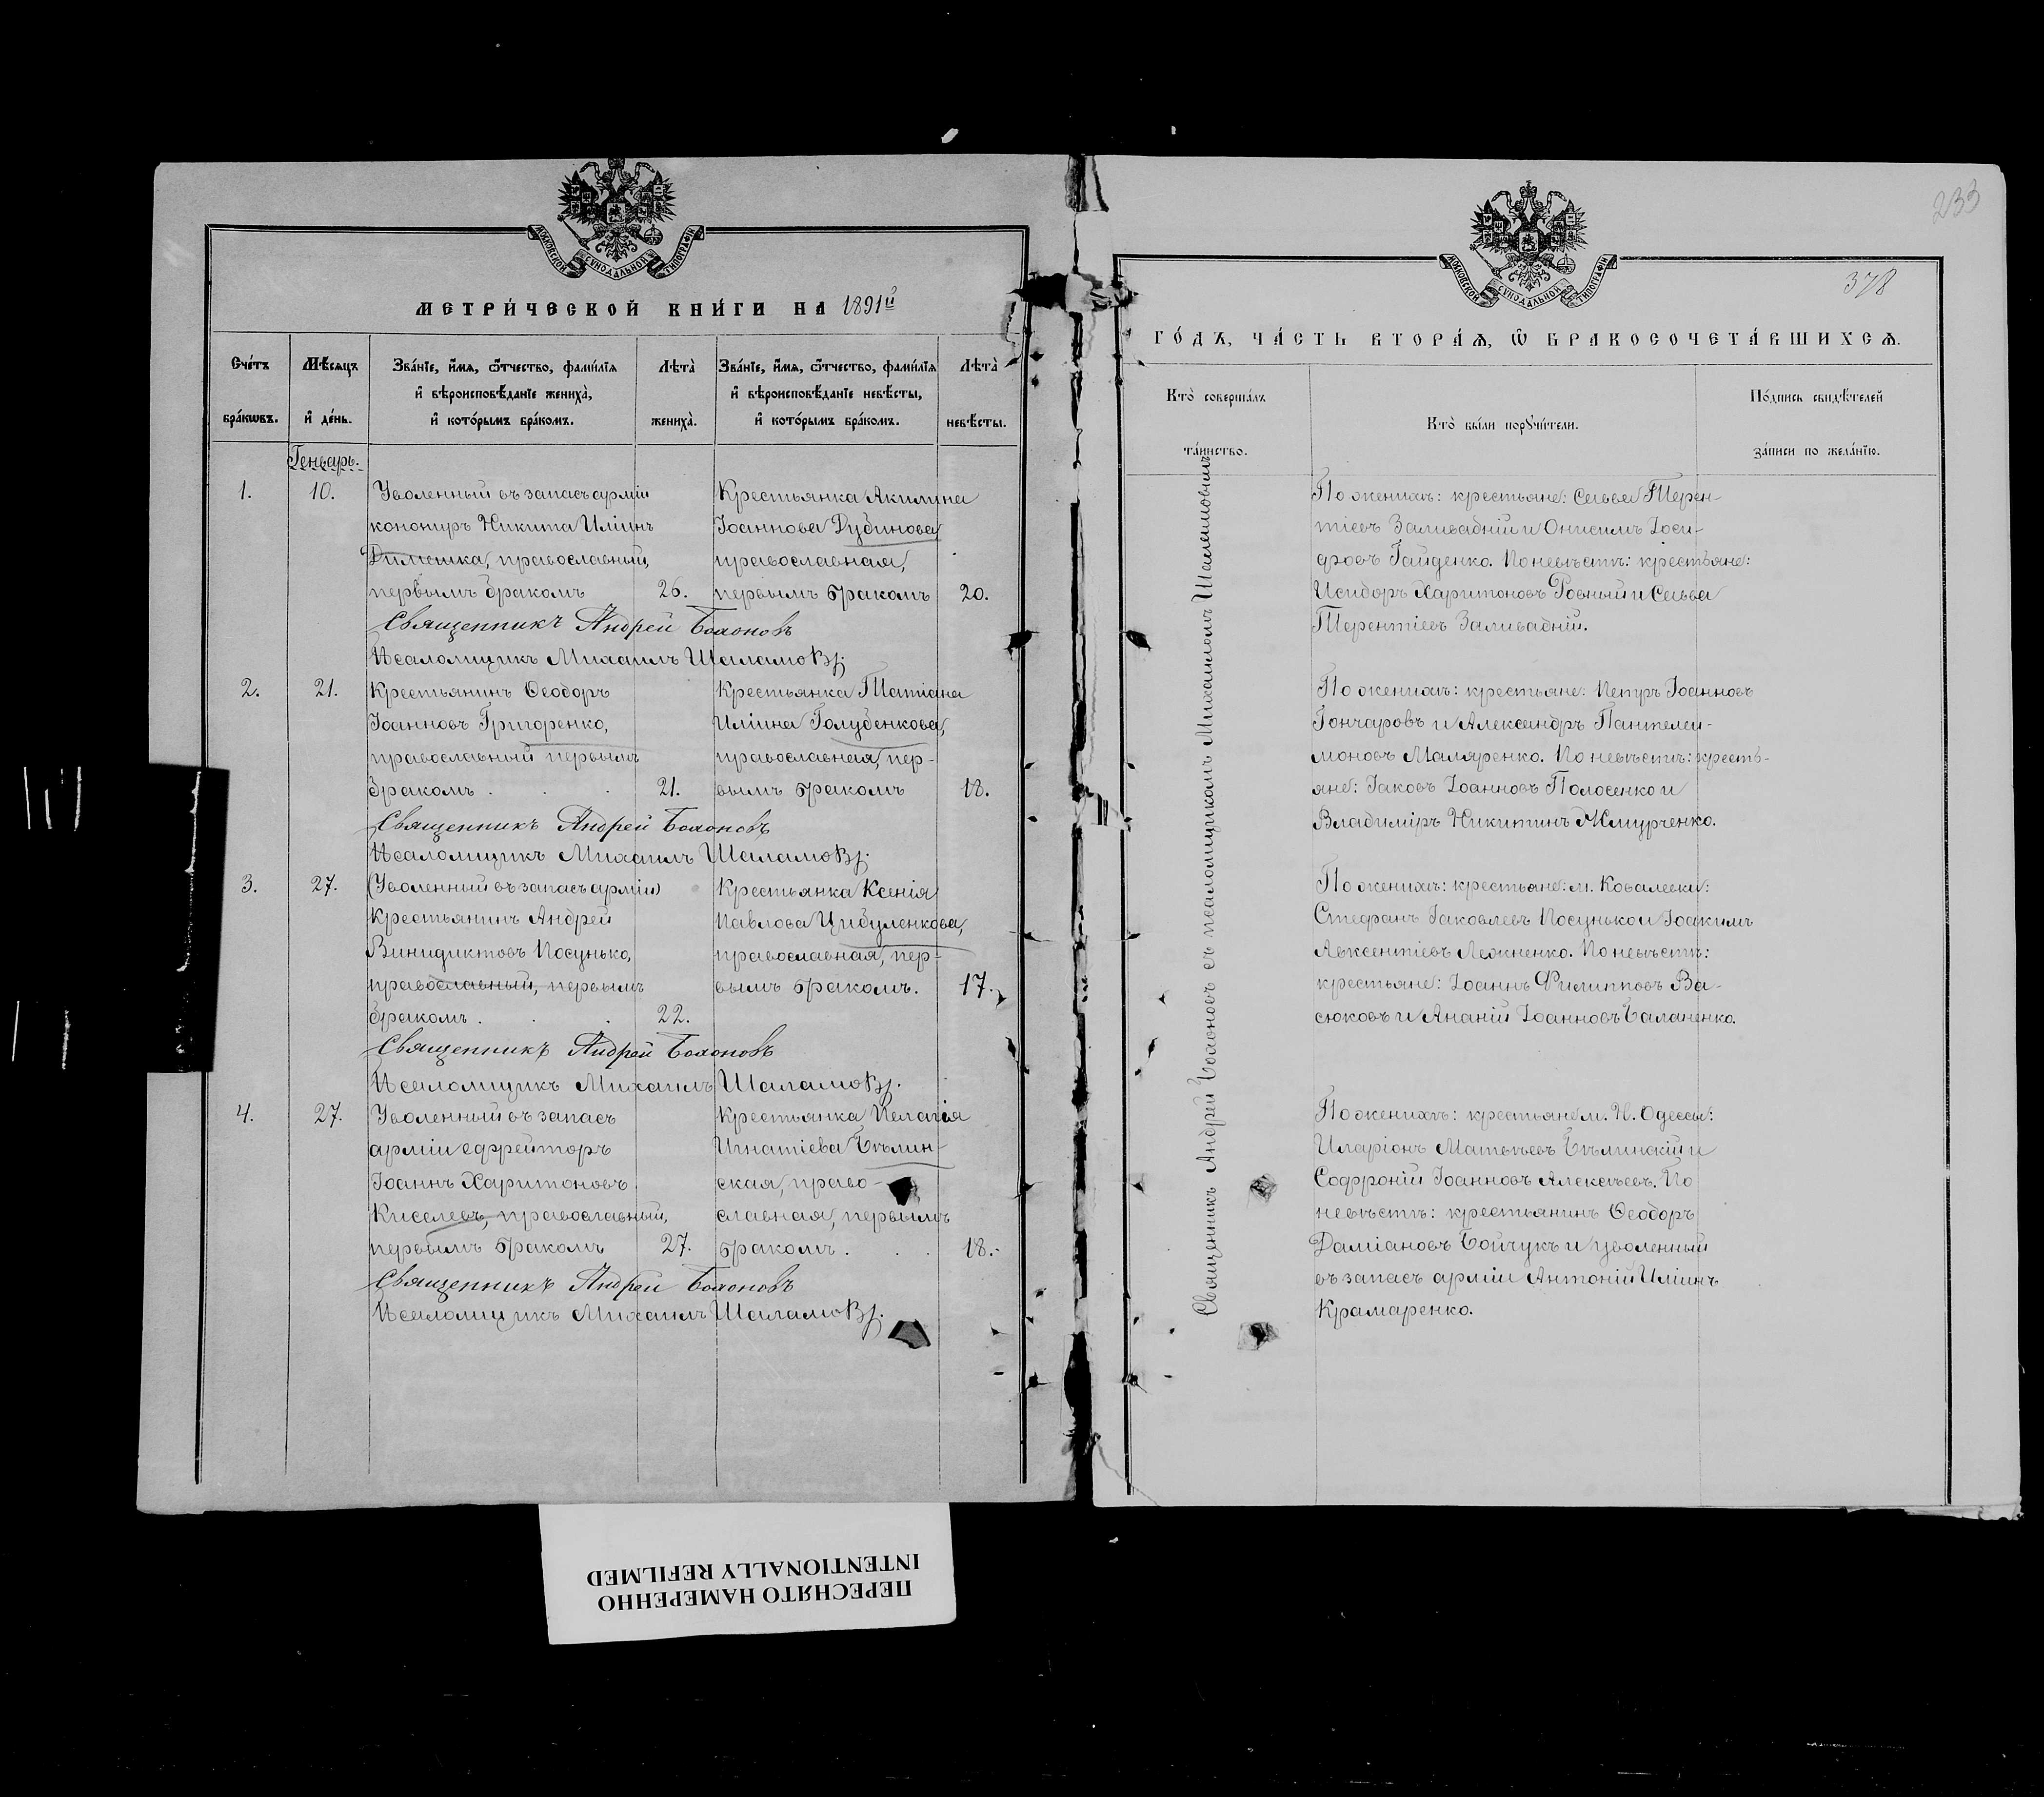 233
378
МОСКОВСКОЙ СѴНОДАЛЬНОЙ ТИПОГРАФІИ
МЕТРИ́ЧЕСКОЙ КНИ́ГИ НА 1891й
Сче́тъ бра́кωвъ.
Мѣ́сяцъ и҆ де́нь.
Зва́нїе, и҆́мѧ, ѻ҆́тчество, фами́лїѧ и҆ вѣроисповѣ́данїе жениха̀, и҆ кото́рымъ бра́комъ.
Лѣ́та жениха̀.
Зва́нїе, и҆́мѧ, ѻ҆́тчество, фами́лїѧ и҆ вѣроисповѣ́данїе невѣ́сты, и҆ кото́рымъ бра́комъ.
Лѣ́та невѣ́сты.
Генварь.
1. 10.
Уволенный въ запасъ арміи
канониръ Никита Иліинъ
православный,
первымъ бракомъ 26.
Крестьянка Акилина
Іоаннова Дубинова
православная,
первымъ бракомъ 20.
Священникъ Андрей
Псаломщикъ Михаилъ Шаламовъ.
2. 21.
Крестьянинъ Ѳеодоръ
Іоанновъ Григоренко,
православный первымъ
бракомъ . . . 21.
Крестьянка Татіана
Иліина Голубенкова,
православная, пер-
вымъ бракомъ 18.
Священникъ Андрей
Псаломщикъ Михаилъ Шаламовъ.
3. 27.
(Уволенный въ запасъ арміи)
Крестьянинъ Андрей
Винидиктовъ Посунько,
православный, первымъ
бракомъ . . . 22.
Крестьянка Ксенія
Павлова Цибуленкова,
православная, пер-
вымъ бракомъ. 17.
Священникъ Андрей
Псаломщикъ Михаилъ Шаламовъ.
4. 27.
Уволенный въ запасъ
арміи ефрейторъ
Іоаннъ Харитоновъ
Киселевъ, православный,
первымъ бракомъ 27.
Крестьянка Пелагія
Игнатіева Бѣлин-
ская, право-
славная, первымъ
бракомъ . . . 18.
Священникъ Андрей
Псаломщикъ Михаилъ Шаламовъ.
МОСКОВСКОЙ СѴНОДАЛЬНОЙ ТИПОГРАФІИ
ГО́ДЪ, ЧА́СТЬ ВТОРА́Ѧ, Ѽ БРАКОСОЧЕТА́ВШИХСѦ.
Кто̀ соверша́лъ та́инство.
Кто̀ бы́ли порꙋчи́тели.
По́дпись свидѣ́телей за́писи по жела́нїю.
Священникъ Андрей съ псаломщикомъ Михаиломъ Шаламовымъ
По женихѣ: крестьяне: Савва Терен-
тіевъ Заливадній и Онисимъ Іоси-
фовъ Гайденко. По невѣстѣ: крестьяне:
Исидоръ Харитоновъ Ровный и Савва
Терентіевъ Заливадній.
По женихѣ: крестьяне: Петръ Іоанновъ
Гончаровъ и Александръ Пантелеи-
моновъ Маляренко. По невѣстѣ: кресть-
яне: Іаковъ Іоанновъ Полосенко и
Владиміръ Никитинъ Жмурченко.
По женихѣ: крестьяне: м. Ковалевки:
Стефанъ Іаковлевъ Посунько и Іоакимъ
Авксентіевъ Лежненко. По невѣстѣ:
крестьяне: Іоаннъ Филипповъ Ва-
сюковъ и Ананій Іоанновъ Баланенко.
По женихѣ: крестьяне м. Н. Одессы:
Иларіонъ Матвѣевъ Бѣлинскій и
Софроній Іоанновъ Алексѣевъ. По
невѣстѣ: крестьянинъ Ѳеодоръ
Даміановъ Бойчукъ и уволенный
въ запасъ арміи Антоній Иліинъ
Крамаренко.
ПЕРЕСНЯТО НАМЕРЕННО
INTENTIONALLY REFILMED